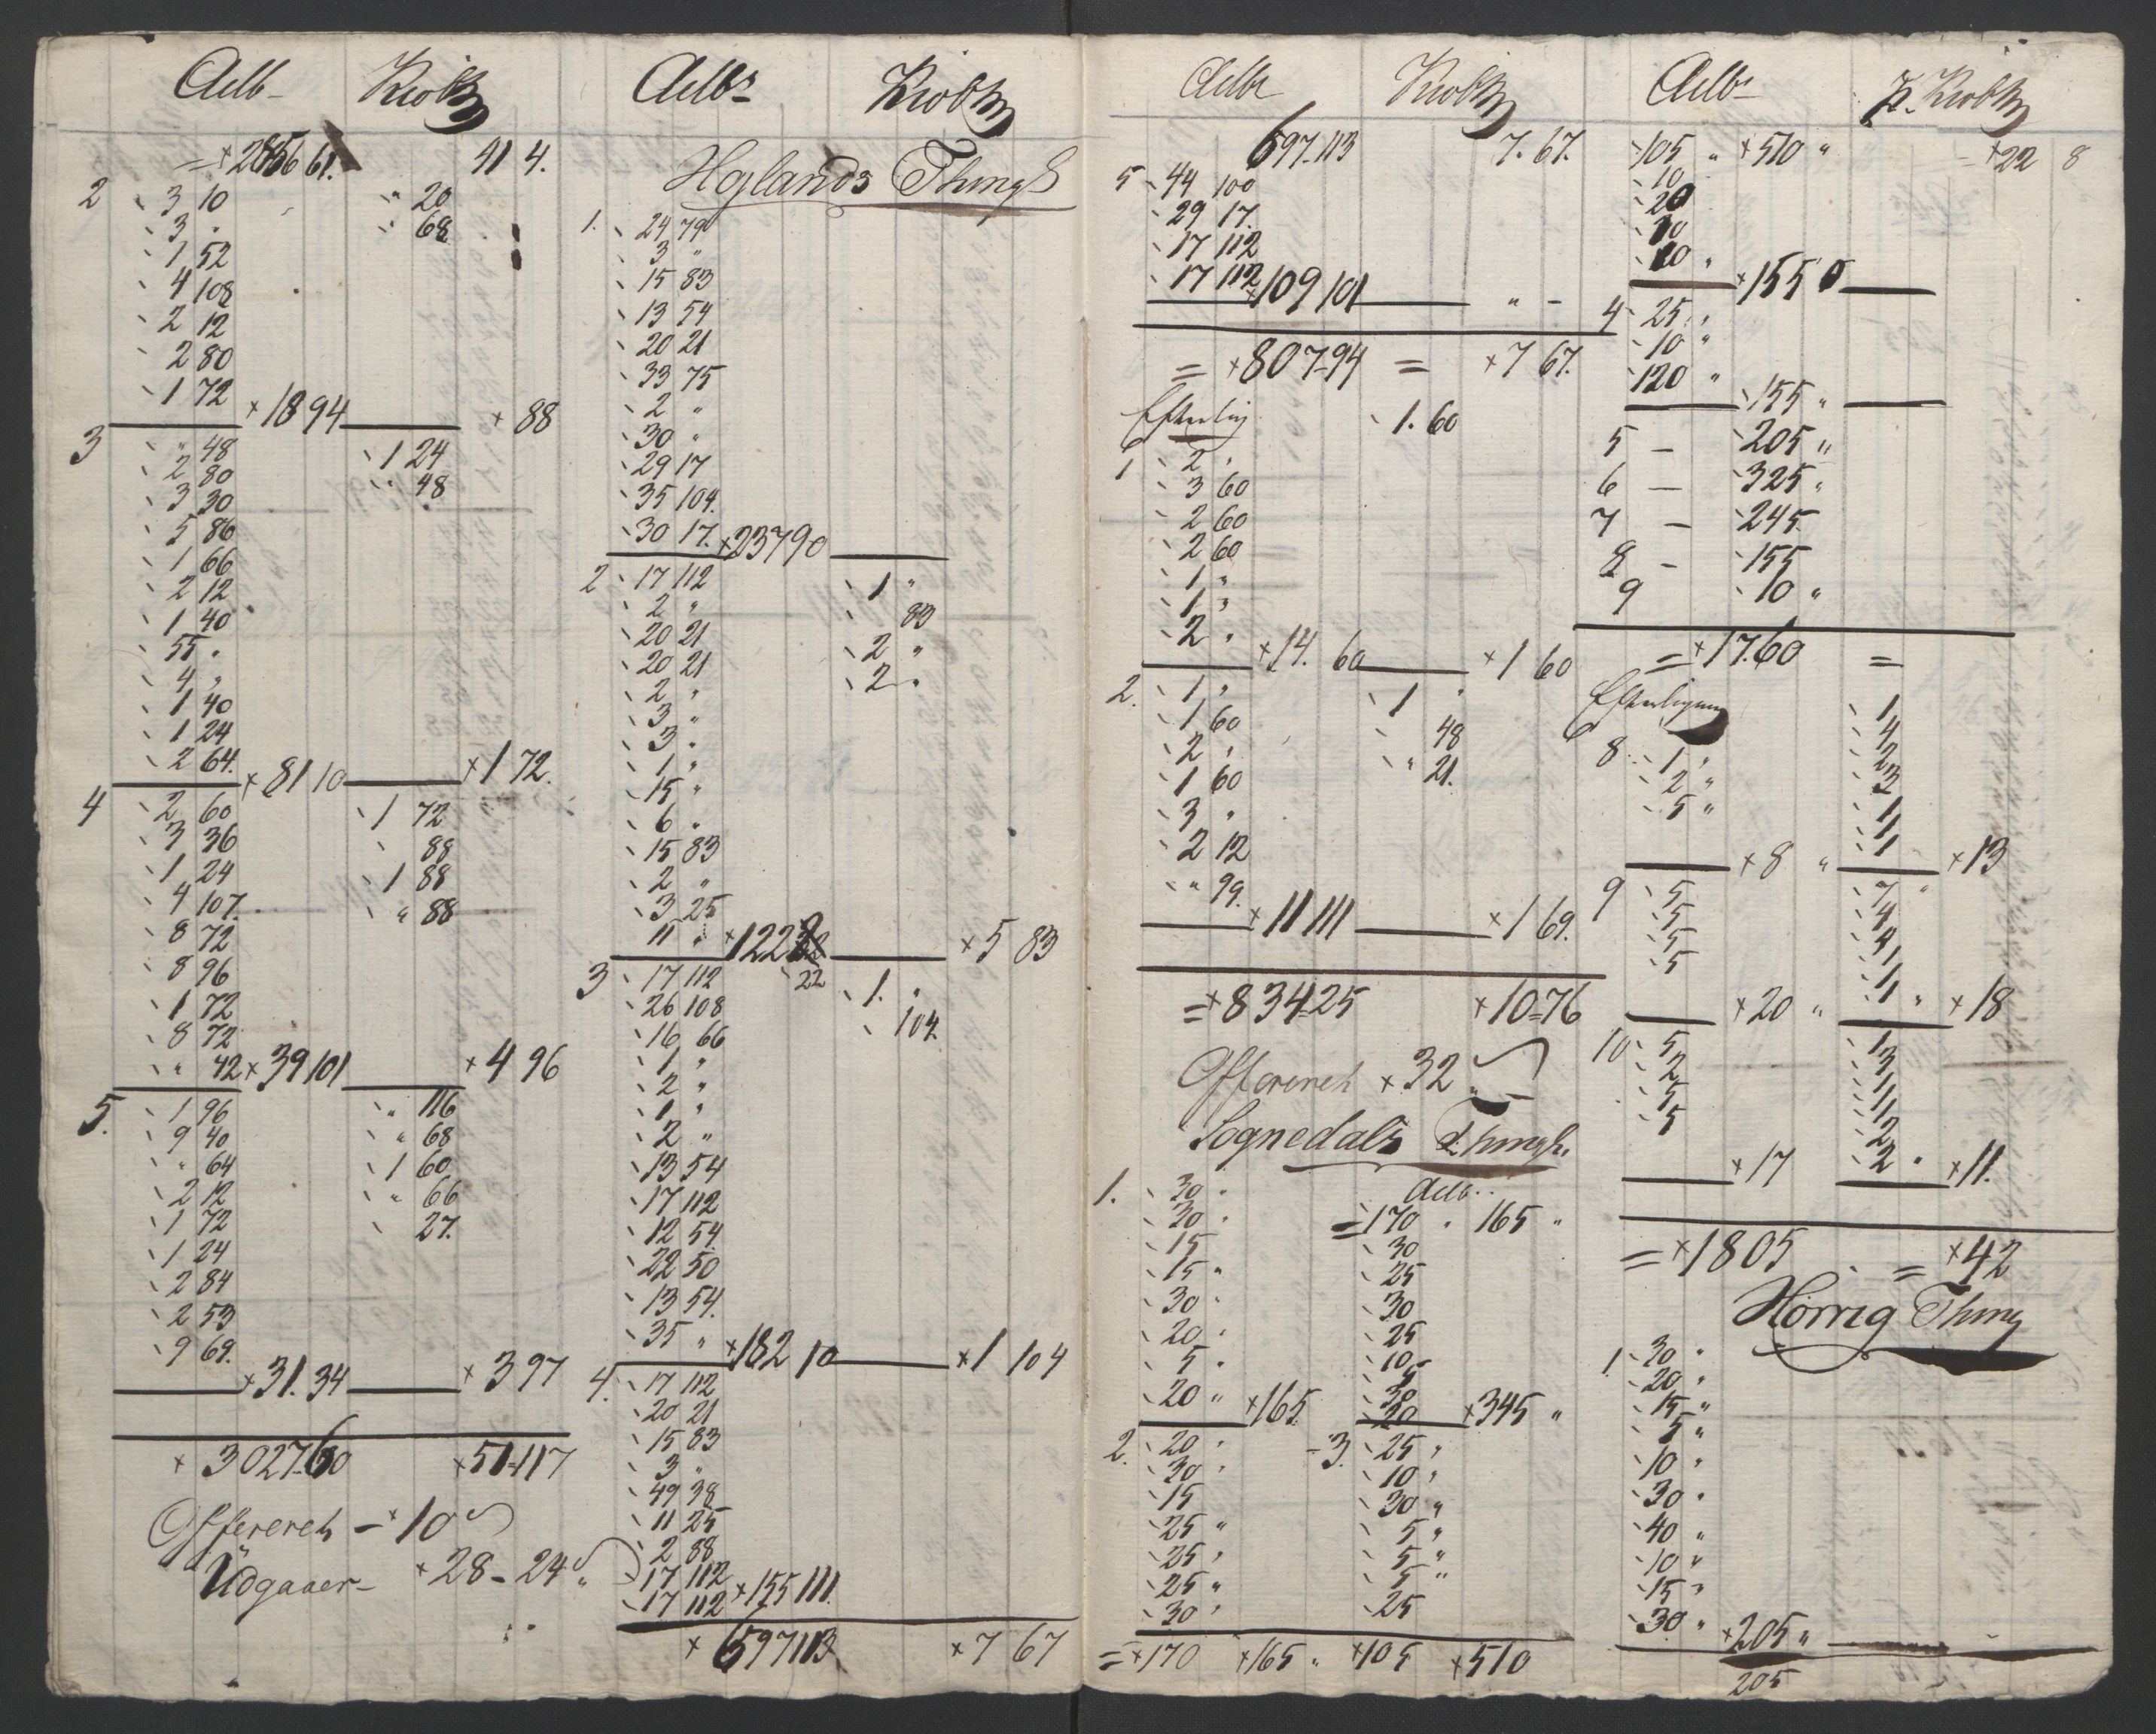 Aelb Krobtz
= + 61. 41 4.
2 3 10 " 20
3 " " 68
1 52
4 108
2 12
2 80
1 72 + 18 94 + 88
3 " 48 1 24
2 80 " 48
3 30
5 86
1 66
2 12
1 40
55 "
4 "
1 40
1 24
2 64. + 81 10 + 1 72.
4 2 60 1 72
3 36 88
1 24 1 88
4 107. " 88
8 72
8 96
1 72
8 72
" 42 + 39 101 + 4 96
5. 1 96 " 116
9 40 " 68
" 64 1 60
2 12 " 66
1 72 27.
1 24
2 84
2 53
9 69.
+ 31. 34 + 3 97
+ 3027 60 + 51=117
Offereret - + 10
Udgaaer - + 28 - 24 "
Aelbr Krobtz
Hølands Thingl
1. 24 79
3 "
15 83
13 54
20 21
33 75
2 "
30 "
29 17
35 104.
30 17. + 237 90
2 17 112 1 "
2 " 83
20 21 2 "
20 21 2 "
2 "
3 "
3 "
1 "
15 "
6 "
15 83
2 "
3 25
11 " + 122 + 5 83
22
3 17 112 1. "
26 108 104
16 66
1 "
2 "
1 "
2 "
13 54
17 112
12 54
22 50
13 54.
35 " + 182 10 + 1 104
4. 17 112
20 21
15 83
3 "
49 38
11 25
2 88
17 112
17 112 + 155 111.
+ 597 113 + 7 67
Aelbr Krobtz
697-113 7. 67.
5 44 100
29 17.
17 112
17 112 + 109 101 " -
= + 807-94 = + 7 67.
1. 60
1 2 "
3 60
2 60
2 60
1 "
1 "
2 "
+ 14. 60 + 1 60
2. 1 " 1 "
1 60 48
2 " " 21.
1 60
3 "
2 12
" 99.
+ 11 111 + 1 69.
= + 834=25 + 10=76
Offereret + 32 "
Sognedals Thingl.
1. 30 " Aelb..
30 " = 170 " 165 "
15 30
15 " 25
30 " 30
20 " 25
5 " 10
20 " + 165. 30
20 + 345 "
2. 20 " - 3. 25 "
30 " 10 "
15 30 "
25 " 5 "
25 " 5 "
25 " 5 "
30 " 25
= + 170 + 165 " + 105 + 510
Aelbr Krobtz
105 " + 510 " + 22 8
10
20
10
10 "
+ 155
4 25 "
10 "
120 "
155 "
5 - 205 "
6 - 325 "
7 - 245
8 - 155
9 10 "
= + 17.60 =
1
4
8 1 " 2
2 " 3
5 " 1
1
1
+ 8 " + 13
9 5 7 "
5 4
5 4
5 1
1 "
+ 20 " + 18
10 5 1
2 3
5 1
5 1
2
2 "
+ 17 + 11.
= + 1805 = + 42
Horrig Thing
1. 30 "
20 "
15 "
5 "
10 "
30 "
40 "
10 "
15 "
30 " + 205 "
205